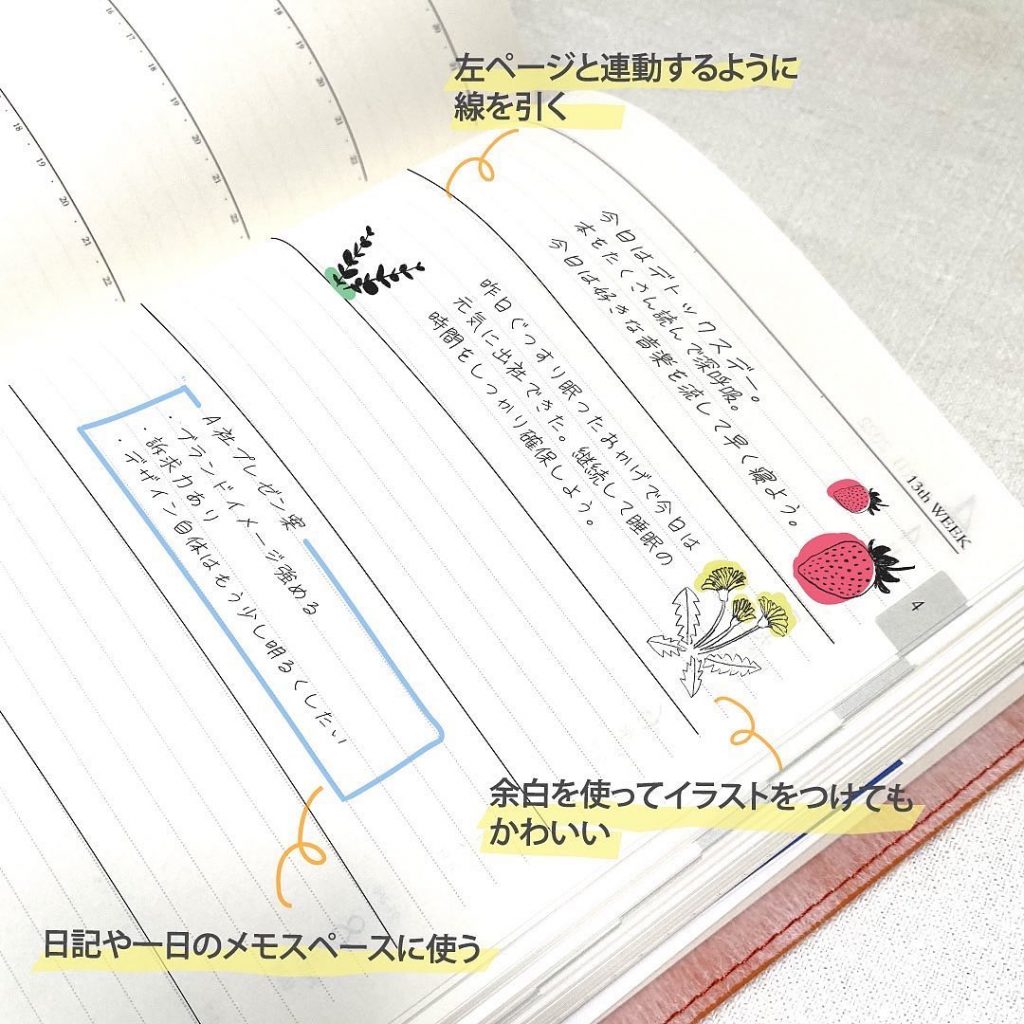 左ページと連動するように
線を引く
今日はデトックスデー。
本をたくさん読んで深呼吸。
今日は好きな音楽を流して早く寝よう。
昨日ぐっすり眠ったおかげで今日は
元気に出社できた。継続して睡眠の
時間をしっかり確保しよう。
13th WEEK
4
A社プレゼン案
・ブランドイメージ強める
・訴求力あり
・デザイン自体はもう少し明るくしたい
余白を使ってイラストをつけても
かわいい
日記や一日のメモスペースに使う
16
17
18
19
20
21
22
16
17
18
19
20
21
22
18
19
20
21
22
20
22